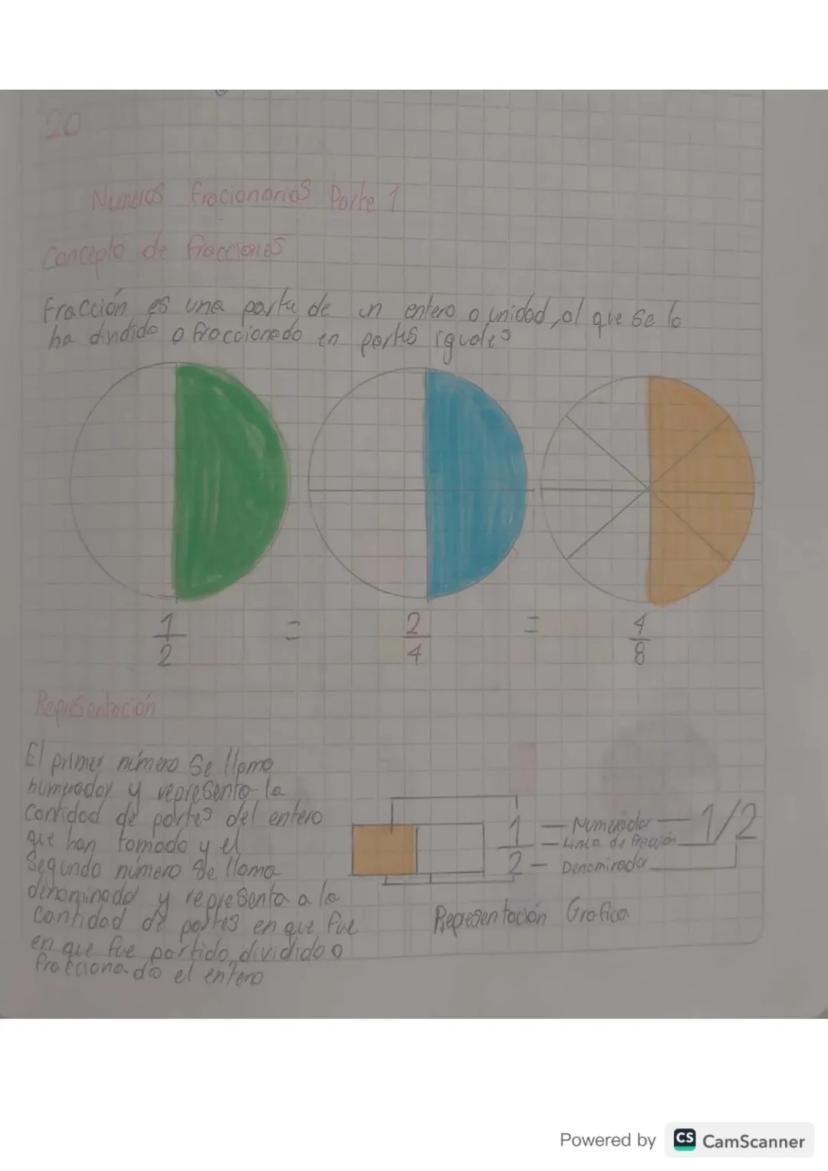 20
Numeros fracionarios Parte 1
Concepto de fracciones
Fracción es una parte de un entero o unidad, al que se lo
ha dividido o fraccionado en partes iguales
1/2 = 2/4 = 4/8
Representación
El primer número se llama
numerador y representa la
cantidad de partes del entero
que han tomado y el
segundo número se llama
denominador y representa a la
cantidad de partes en que fue
en que fue partido, dividido o
fraccionado el entero
1 — Numerador — 1/2
— Linea de fracción
2 — Denominador
Representación Grafica
Powered by CS CamScanner